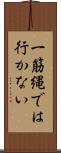 一筋縄では
行かない